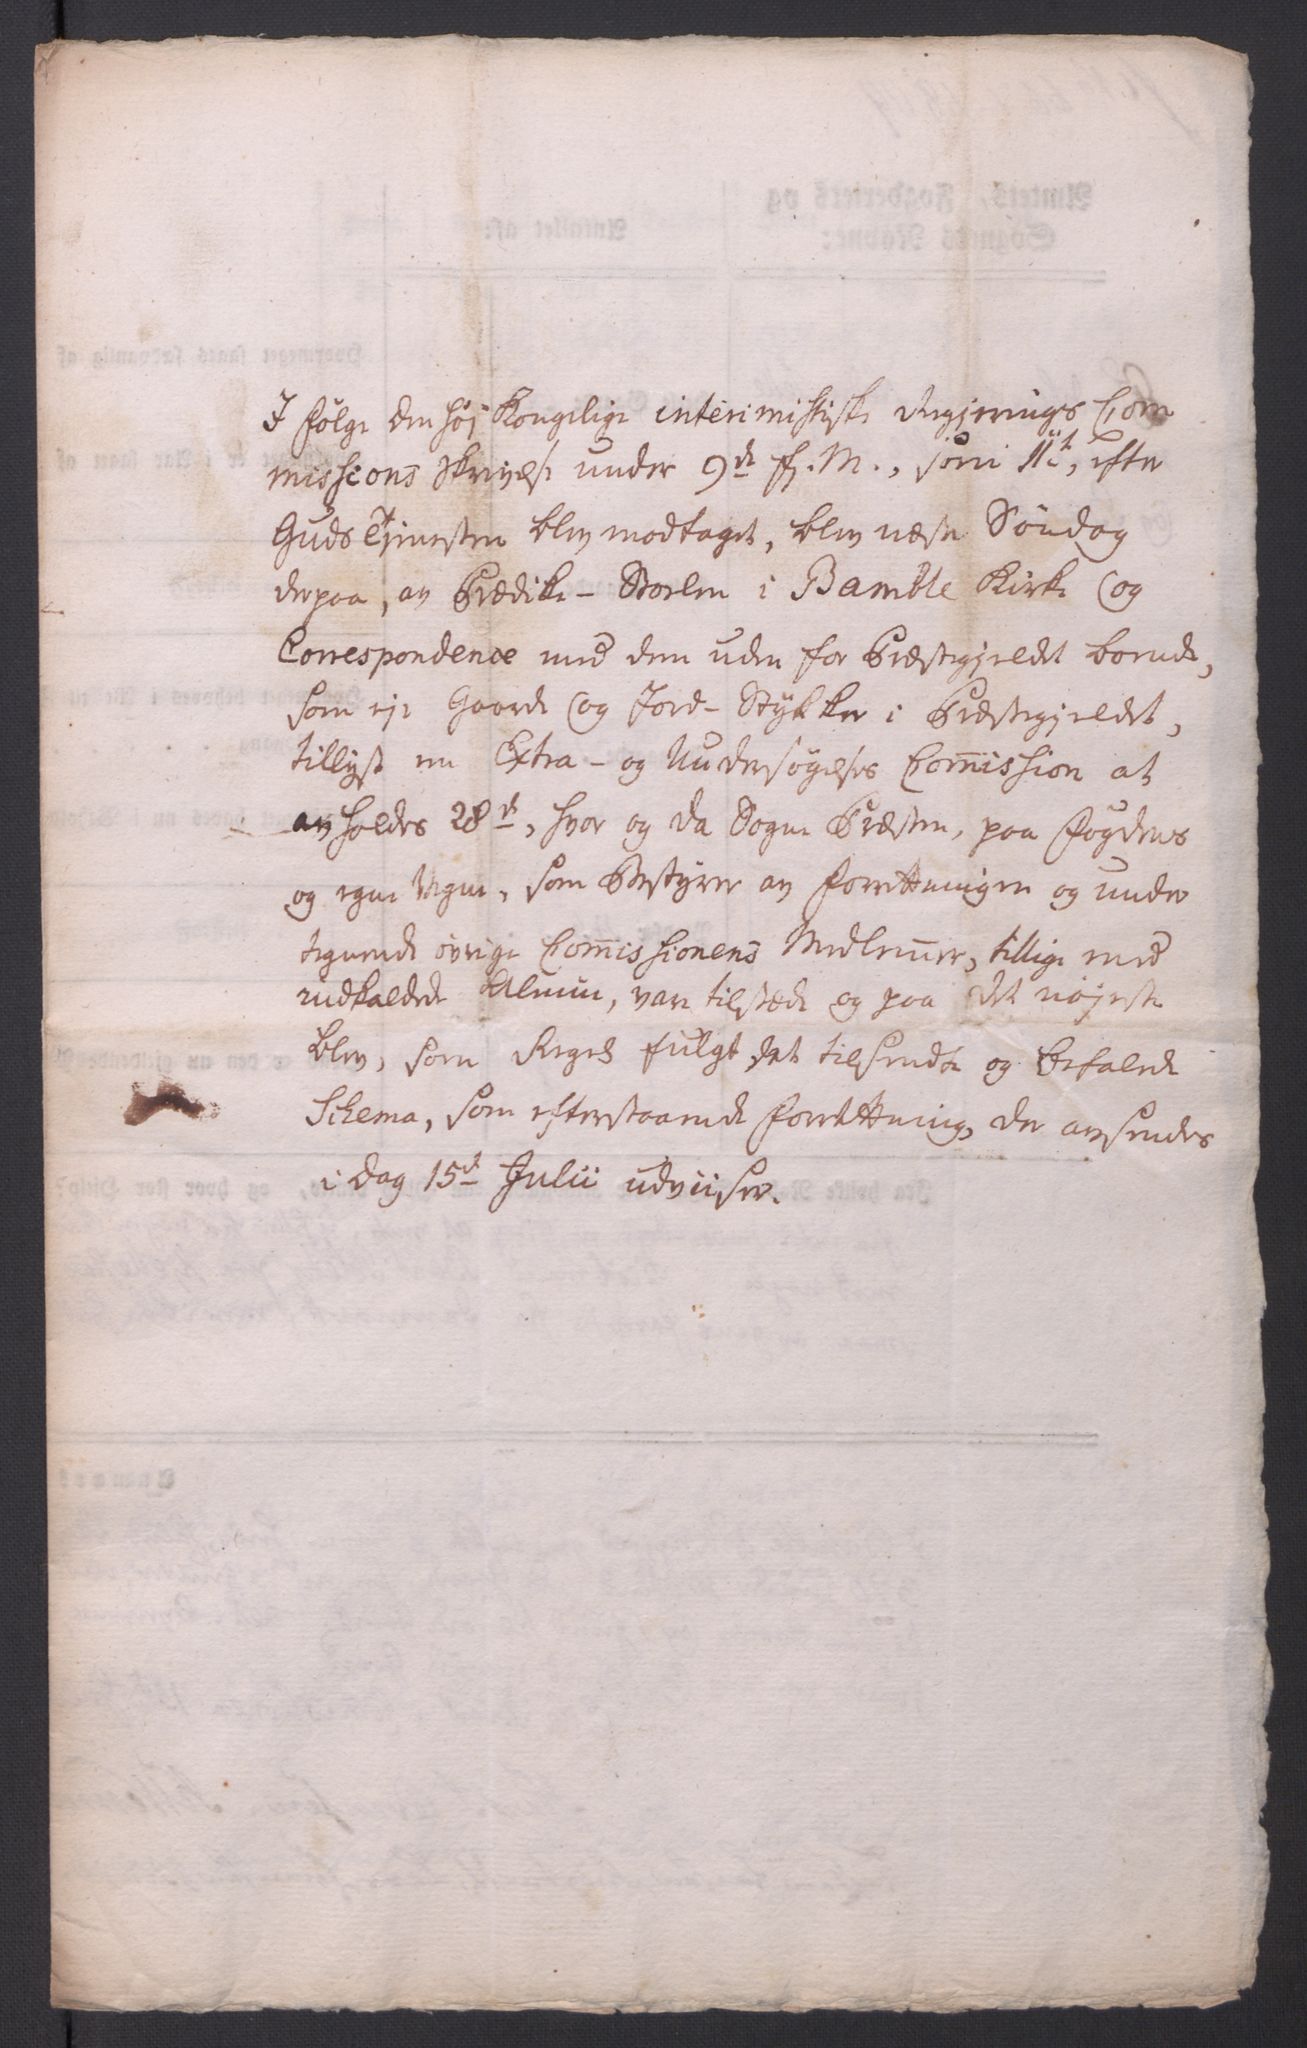 I følge den høj Kongelige interimistiske Regjerings Com
missions Skrivelse under 9de f. M., som 11te, efter
Guds Tjenesten blev modtaget, blev næste Søndag
derpaa, av Prædike-Stoelen i Bamble Kirke (og
Correspondence med dem uden for Præstegjeldet boende,
som eje Gaarde (og Jord-Stykker i Præstegjeldet,
tillyst en Extra- og Undersøgelses Com̅ission at
avholdes 28de, hvor og da Sogne Præsten, paa Fogdens
og egne Vegne, som Bestyrer av Forretningen og under
tegnede øvrige Com̅issionens Medlem̅er, tillige med
indkaldede Almue, vare tilstæde og paa det nøjeste
blev, som Regel fulgt det tilsendte og befalede
Schema, som efterstaaende Forretning, der avsendes
i Dag 15de Julii udviiser.